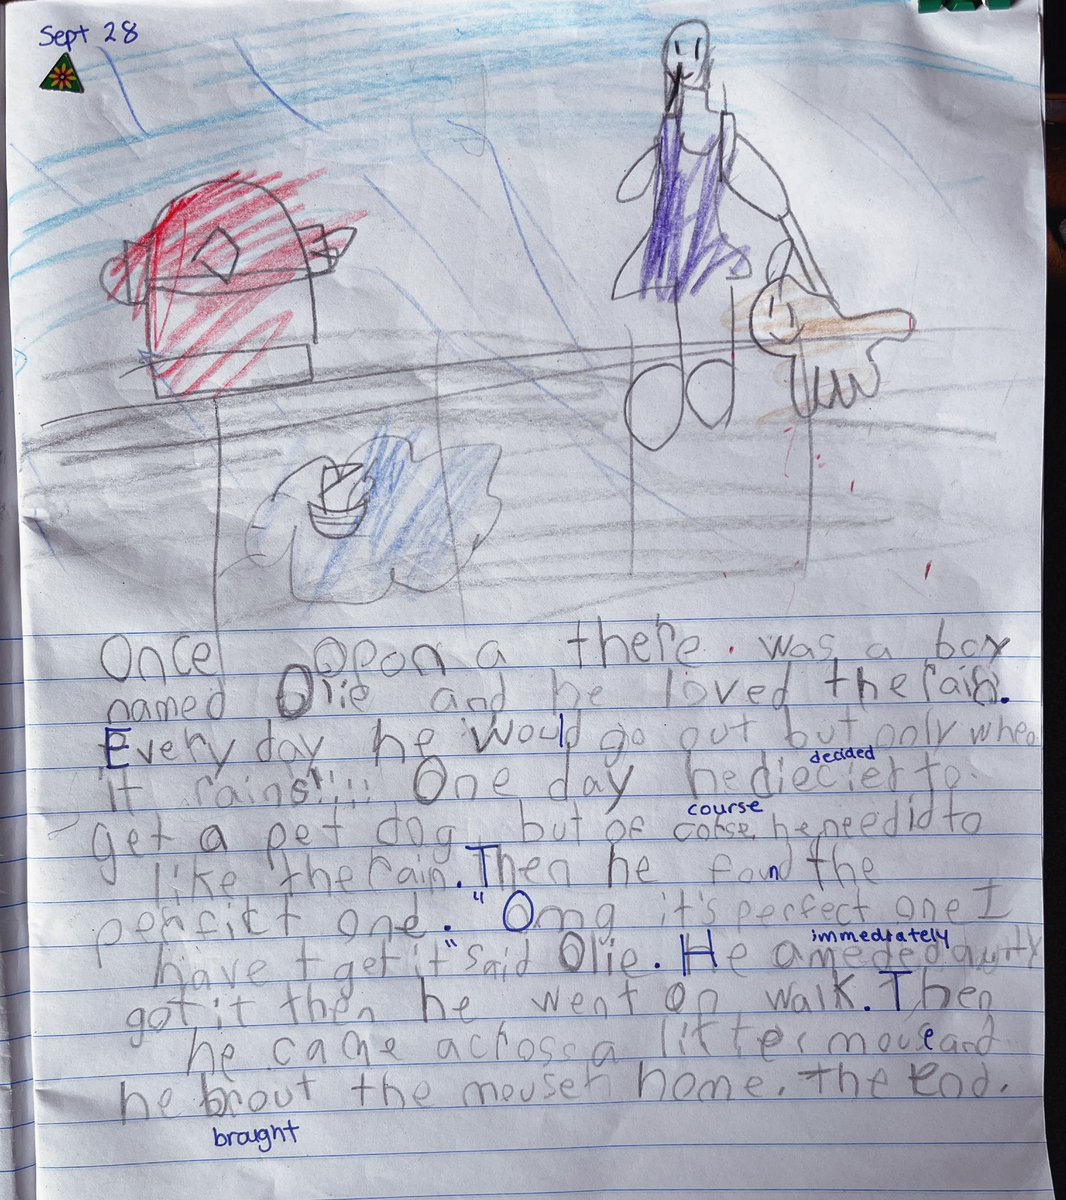 Sept 28
Once opon a there. was a boy
named Olie and he loved the rain.
Every day he would go out but only when
decided
it rains!!!!! One day he diecier to
course
get a pet dog, but of corse he needid to
like the rain. Then he found the
perfict one. "Omg it's perfect one I
immediately
have t get it" said Olie. He
got it then he went on walk. Then
he came across a litter mouse and
he brout the mouseh home. The end.
brought